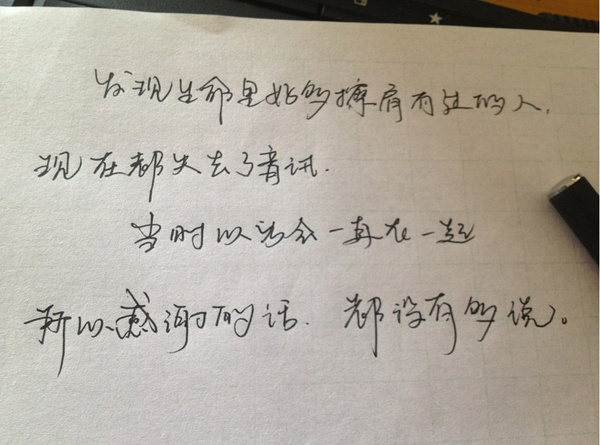 发现生命里好多擦肩而过的人，
现在都失去了音讯．
当时以为会一直在一起
所以感谢的话．都没有多说。